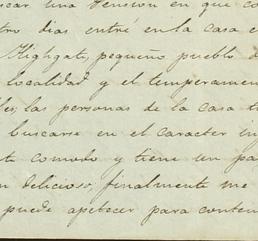 scar una Pension en que co
tro dias entré en la casa e
Highgate, pequeño pueblo d
localidad y el temperamen
les, las personas de la casa t
buscarse en el caracter in
te comodo y tiene un pa
n delicioso, finalmente me
puede apetecer para conten